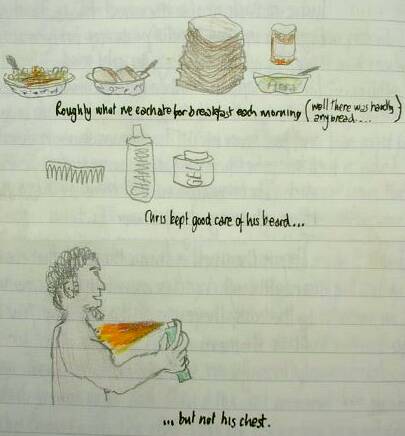 Roughly what we each ate for breakfast each morning (well there was hardly
any bread....)
SHAMPOO
GEL
Chris kept good care of his beard...
... but not his chest.